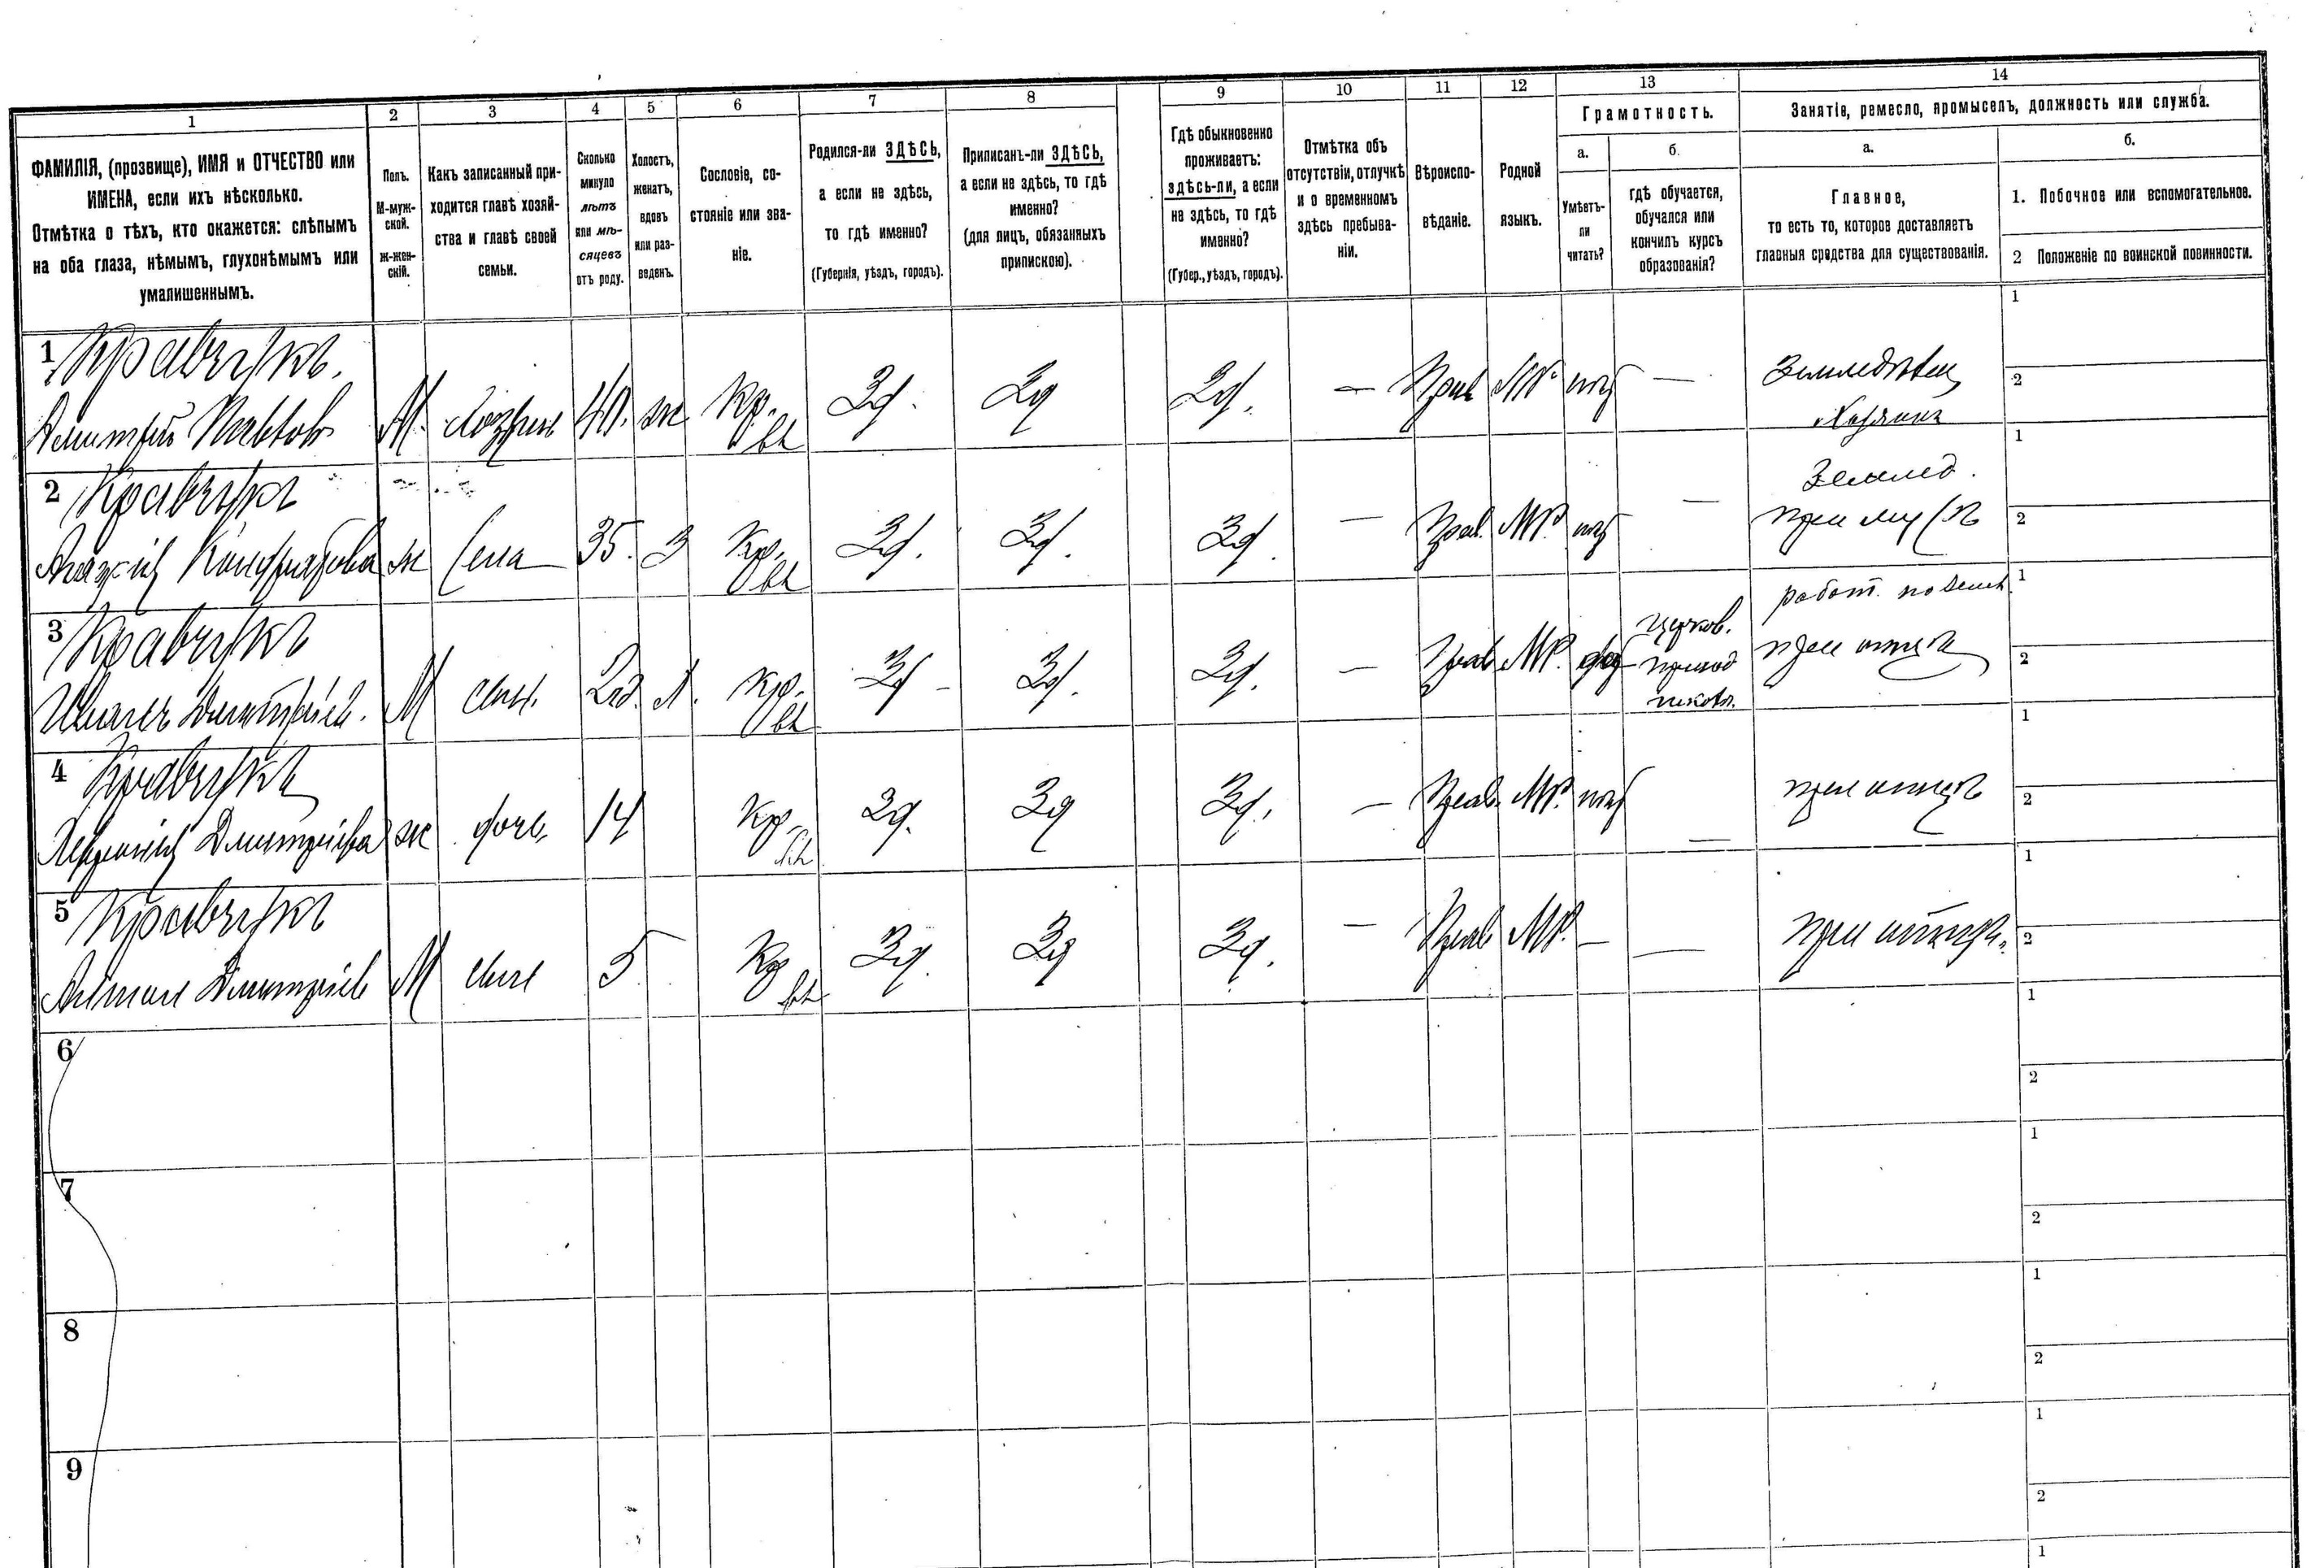 1
2
3
4
5
6
7
8
9
10
11
12
13
14
ФАМИЛІЯ, (прозвище), ИМЯ и ОТЧЕСТВО или
ИМЕНА, если ихъ нѣсколько.
Отмѣтка о тѣхъ, кто окажется: слѣпымъ
на оба глаза, нѣмымъ, глухонѣмымъ или
умалишеннымъ.
Полъ.
М-муж-
ской.
ж-жен-
скій.
Какъ записанный при-
ходится главѣ хозяй-
ства и главѣ своей
семьи.
Сколько
минуло
лѣтъ
или мѣ-
сяцевъ
отъ роду.
Холостъ,
женатъ,
вдовъ
или раз-
веденъ.
Сословіе, со-
стояніе или зва-
ніе.
Родился-ли ЗДѢСЬ,
а если не здѣсь,
то гдѣ именно?
(Губернія, уѣздъ, городъ).
Приписанъ-ли ЗДѢСЬ,
а если не здѣсь, то гдѣ
именно?
(для лицъ, обязанныхъ
припискою).
Гдѣ обыкновенно
проживаетъ:
здѣсь-ли, а если
не здѣсь, то гдѣ
именно?
(Губер., уѣздъ, городъ).
Отмѣтка объ
отсутствіи, отлучкѣ
и о временномъ
здѣсь пребыва-
ніи.
Вѣроиспо-
вѣданіе.
Родной
языкъ.
Грамотность.
а.
Умѣетъ-
ли
читать?
б.
гдѣ обучается,
обучался или
кончилъ курсъ
образованія?
Занятіе, ремесло, промыселъ, должность или служба.
а.
Главное,
то есть то, которое доставляетъ
главныя средства для существованія.
б.
1. Побочное или вспомогательное.
2 Положеніе по воинской повинности.
1 Кравчукъ.
Дмитрій Павлов М. 40. ж Кр. Зд. Зд Зд. — Прав МР. —
Земледѣлец
Хозяинъ
1
2
2 Кравчукъ
ж жена 35. З Кр. Зд. Зд. Зд. — Прав. МР. —
Землед.
при му
1
2
3 Кравчукъ
М сын. Л. Кр. Зд Зд. Зд. — Прав МР.
церков.
приход
школы.
работ. по земл.
при отцѣ
1
2
4 Кравчукъ
Дмитріева ж дочь 14 Кр. Зд. Зд Зд. — Прав. МР. —
при отцѣ
1
2
5 Кравчукъ
Антон Дмитріев М сын 5 Кр Зд. Зд Зд. — Прав МР. — —
при отцѣ
1
2
6
1
2
7
1
2
8
1
2
9
1
2
1